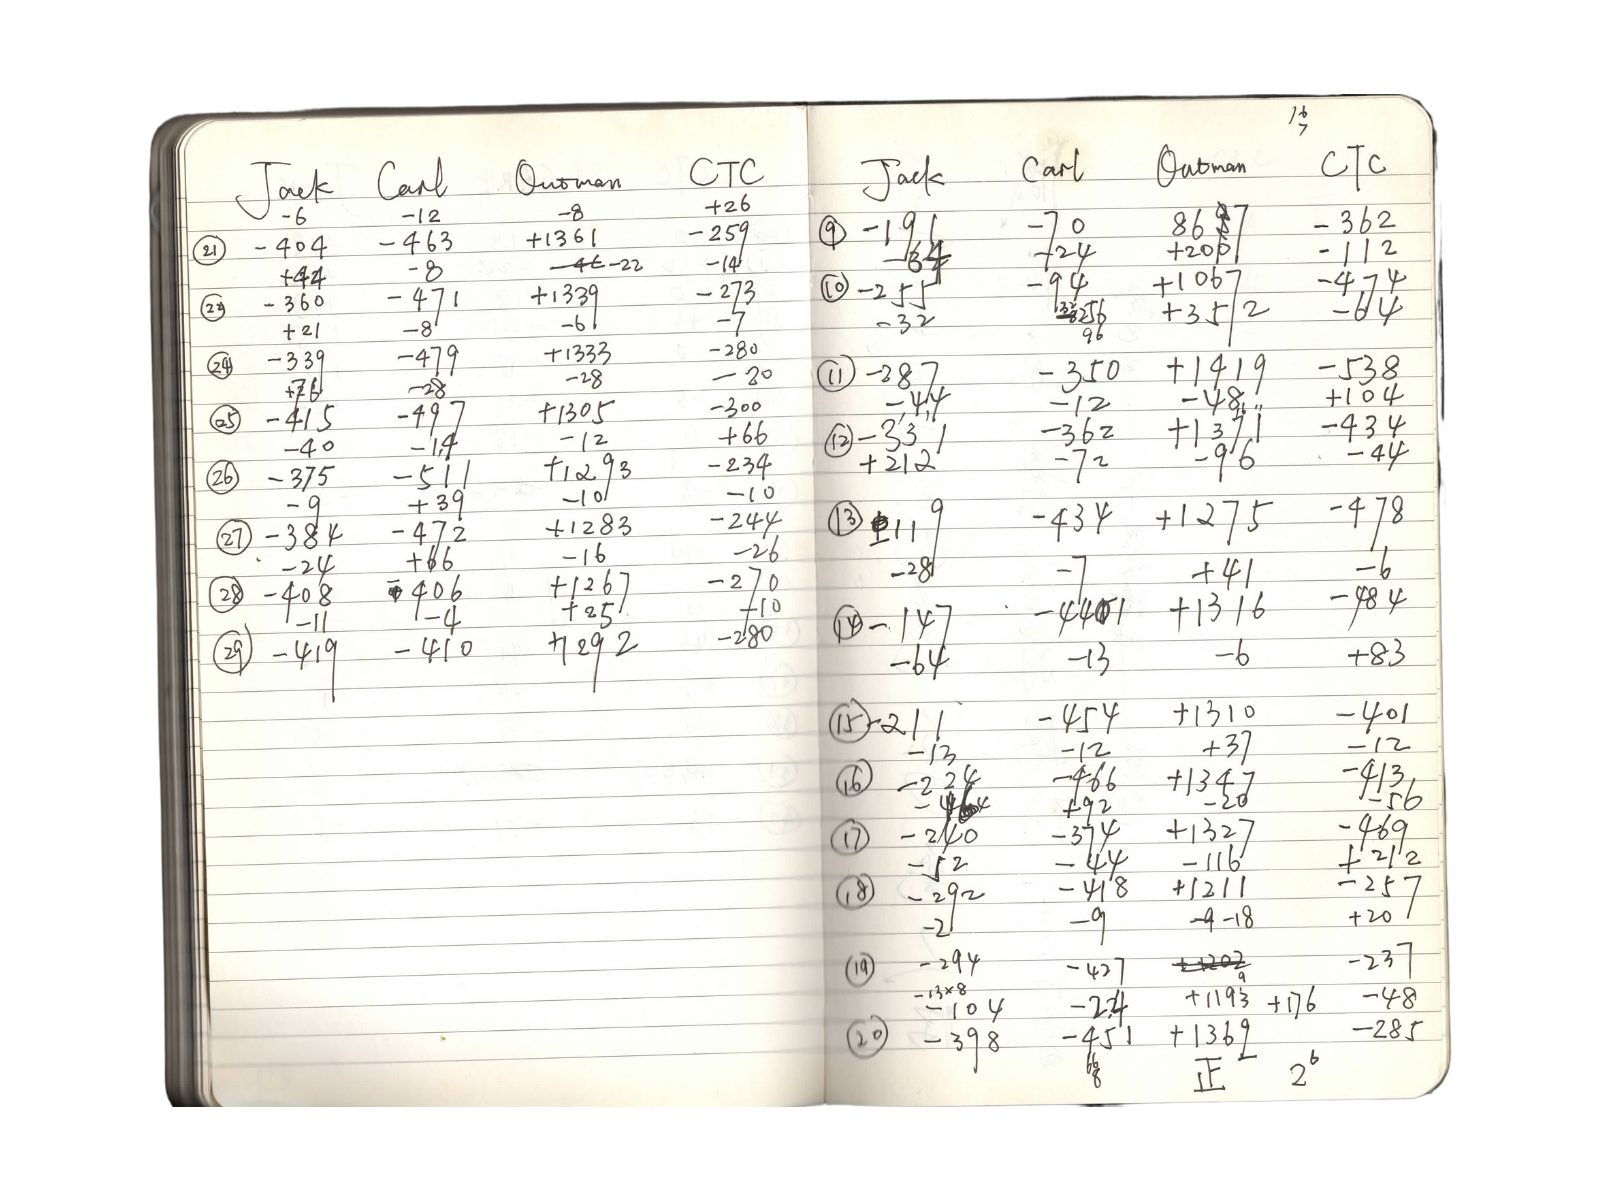 Jack Carl Outman CTC
-6 -12 -8 +26
㉑ -404 -463 +1361 -259
+44 -8 -46 -22 -14
-360 -471 +1339 -273
+21 -8 -6 -7
㉔ -339 -479 +1333 -280
+76 -28 -28 -20
㉕ -415 -497 +1305 -300
-40 -14 -12 +66
㉖ -375 -511 +1293 -234
-9 +39 -10 -10
㉗ -384 -472 +1283 -244
-24 +66 -16 -26
㉘ -408 -406 +1267 -270
-11 -4 +25 -10
㉙ -419 -410 +1292 -280
16
7
Jack Carl Outman CTC
⑨ -191 -70 867 -362
-64 -24 +200 -112
⑩ -255 -94 +1067 -474
-32 256 +352 -64
96
⑪ -287 -350 +1419 -538
-44 -12 -48 +104
⑫ -331 -362 +1371 -434
+212 -72 -96 -44
⑬ -119 -434 +1275 -478
-28 -7 +41 -6
⑭ -147 -441 +1316 -484
-64 -13 -6 +83
⑮ -211 -454 +1310 -401
-13 -12 +37 -12
⑯ -224 -466 +1347 -413
+92 -20 -56
⑰ -240 -374 +1327 -469
-52 -44 -116 +212
⑱ -292 -418 +1211 -257
-2 -9 -9 -18 +20
⑲ -294 -427 +1202 -237
9
-13×8
-104 -24 +1193 +176 -48
⑳ -398 -451 +1369 -285
66
8
正 2⁶